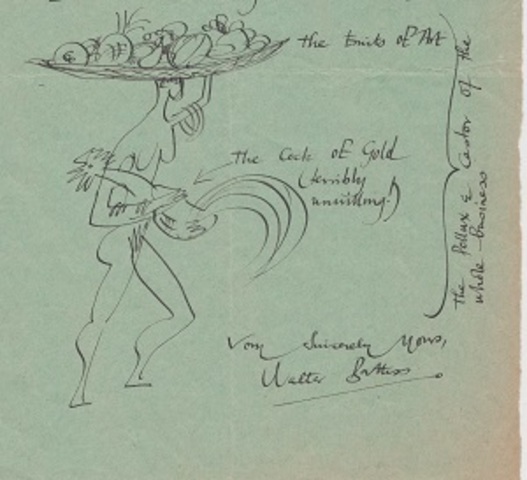 the Fruits of Art
The Cock of Gold
(terribly
unwilling!)
The Pollux & Castor of the
whole business
Very Sincerely Yours,
Walter Battiss